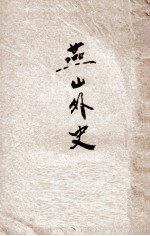 燕山外史